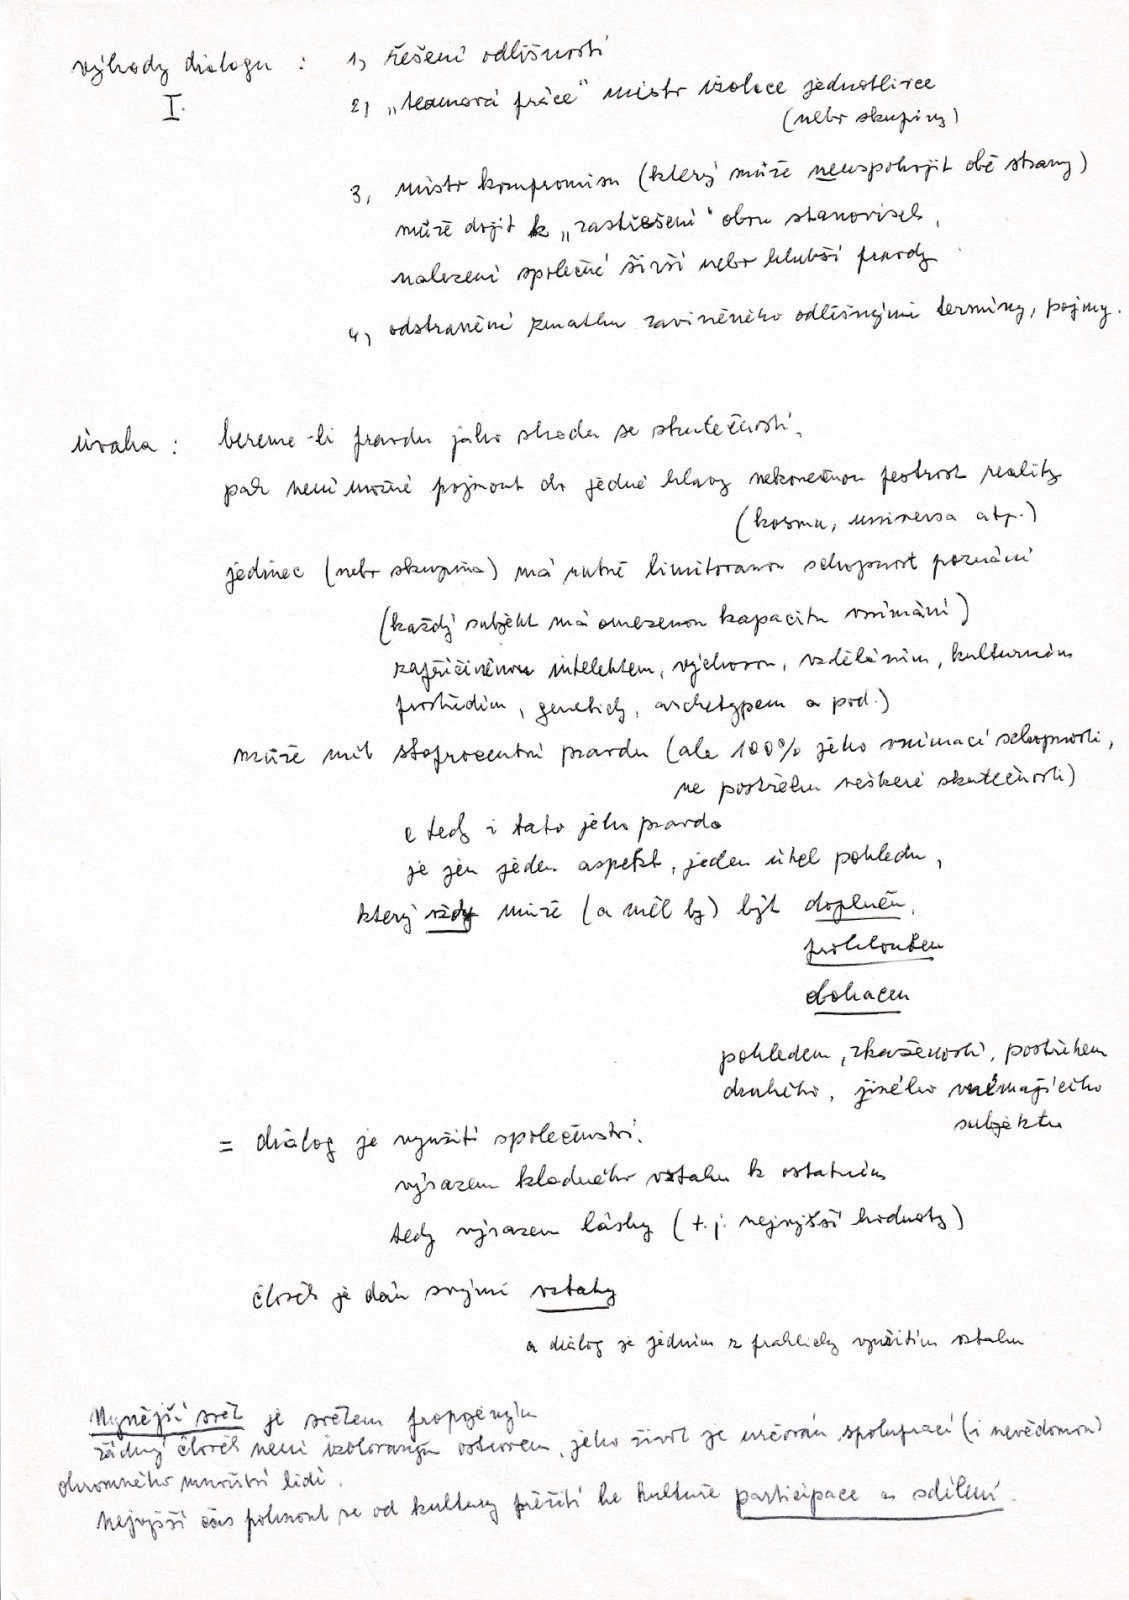 výhody dialogu : 1, řešení odlišností
I. 2, „teamová práce" místo izolace jednotlivce
(nebo skupiny)
3, místo kompromisu (který může neuspokojit obě strany)
může dojít k „zastřešení" obou stanovisek,
nalezení společné širší nebo hlubší pravdy
4, odstranění zmatku zaviněného odlišnými termíny, pojmy.
úvaha : bereme-li pravdu jako shodu se skutečností,
pak není možné pojmout do jedné hlavy nekonečnou pestrost reality
(kosmu, universa atp.)
jedinec (nebo skupina) má nutně limitovanou schopnost poznání
(každý subjekt má omezenou kapacitu vnímání)
zapříčiněnou intelektem, výchovou, vzděláním, kulturním
prostředím, geneticky, archetypem a pod.)
může mít stoprocentní pravdu (ale 100% jeho vnímací schopnosti,
ne postřehu veškeré skutečnosti)
a tedy i tato jeho pravda
je jen jeden aspekt, jeden úhel pohledu,
který vždy může (a měl by) být doplněn,
prohlouben
obohacen
pohledem, zkušeností, postřehem
druhého, jiného vnímajícího
subjektu
= dialog je využití společenství,
výrazem kladného vztahu k ostatním
tedy výrazem lásky (t.j. nejvyšší hodnoty)
člověk je dán svými vztahy
a dialog je jedním z prakticky využitím vztahu
Nynější svět je světem propojeným
žádný člověk není izolovaným ostrovem, jeho život je určován spoluprací (i nevědomou)
ohromného množství lidí.
Nejvyšší čas pohnout se od kultury přežití ke kultuře participace a sdílení.